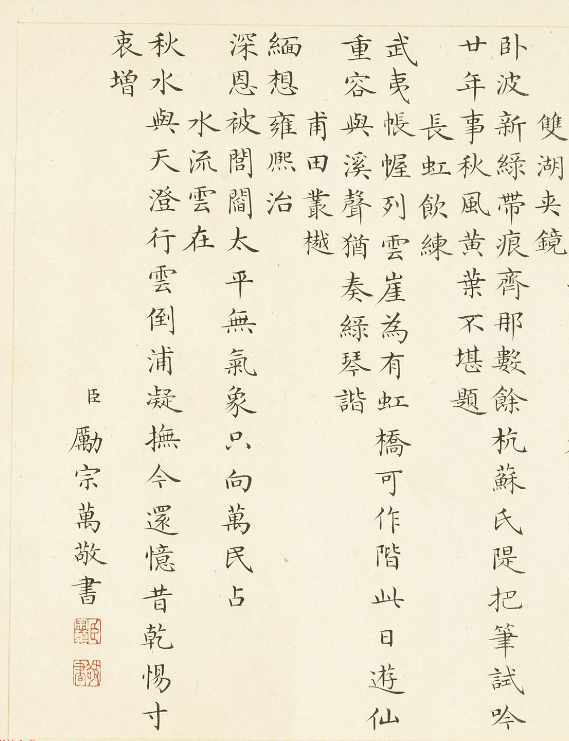 雙湖夾鏡
卧波新綠帶痕齊那數餘杭蘇氏隄把筆試吟
廿年事秋風黃葉不堪題
長虹飲練
武夷帳幄列雲崖為有虹橋可作階此日遊仙
重容與溪聲猶奏綠琴諧
甫田叢樾
緬想雍熙治
深恩被閭閻太平無氣象只向萬民占
水流雲在
秋水與天澄行雲倒浦凝撫今還憶昔乾惕寸
衷增
臣勵宗萬敬書